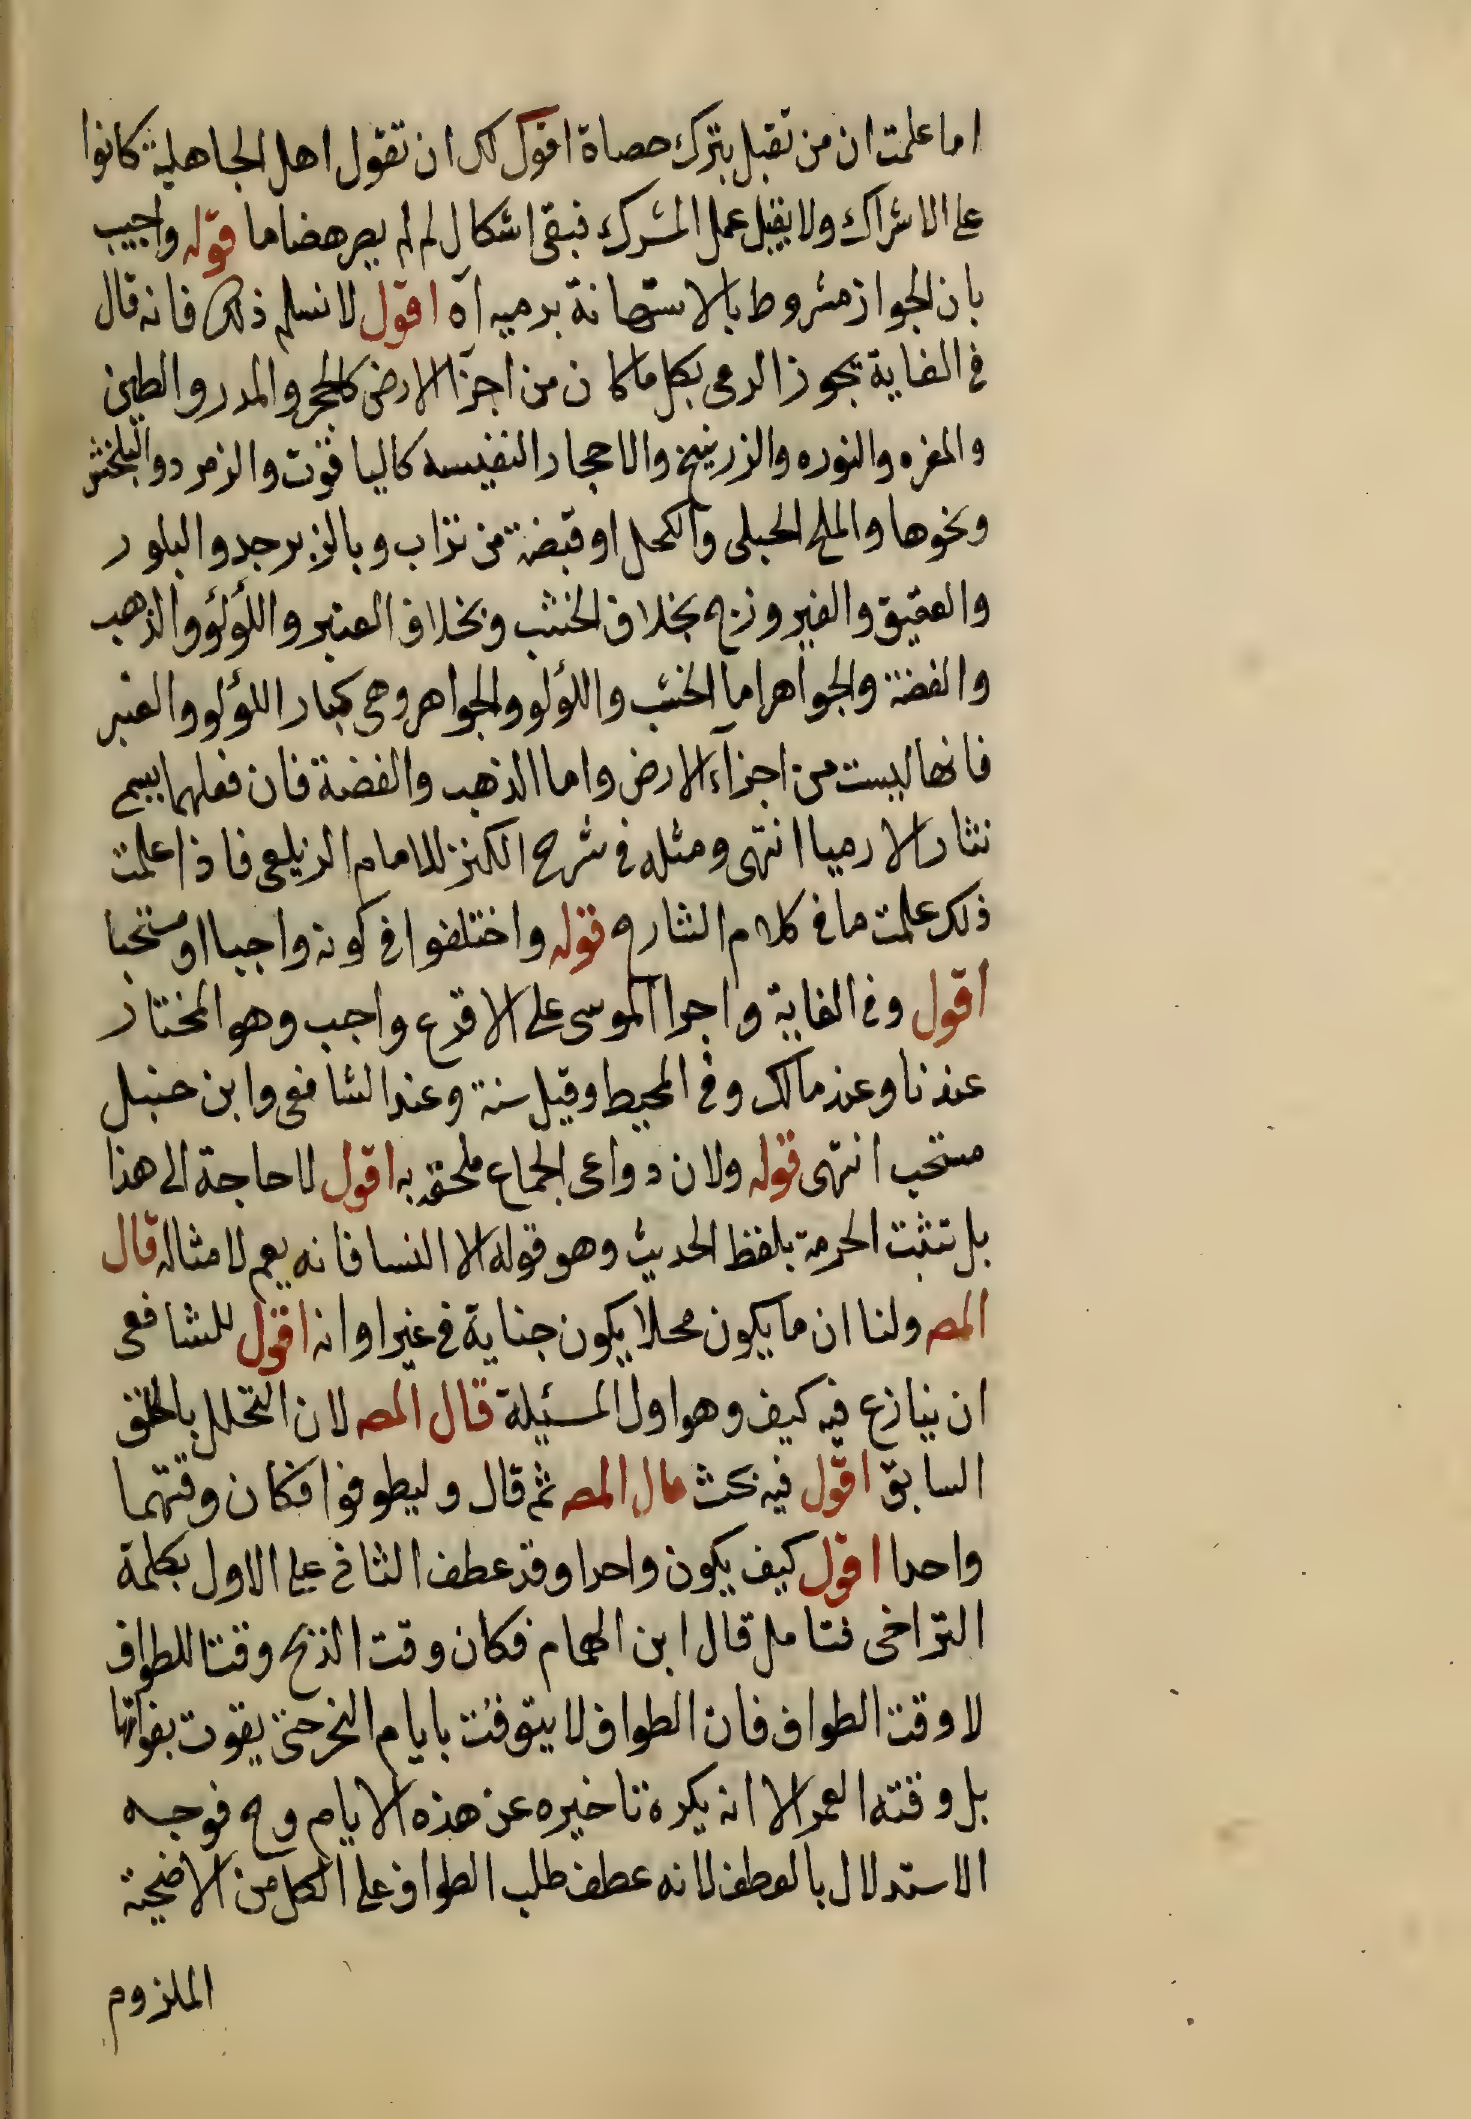 اما علمت ان من تقبل يترك حصاة اقول لك ان تقول اهل الجاهلية كانوا
على الاشراك ولا يقبل عمل المشرك فبقى اشكال لم لم يصر هضاما قوله واجيب
بان الجواز مشروط بالاستهانة برميه آه اقول لا نسلم ذلك فانه قال
فى الغاية يجوز الرمى بكل ما كان من اجزآ الارض كالحجر والمدر والطين
والمغره والنوره والزرنيخ والاحجار النفيسه كالياقوت والزمرد والبلخش
ونحوها والملح الجبلى والكحل او قبضة من تراب وبالزبرجد والبلور
والعقيق والفيروزج بخلاف الخشب وبخلاف العنبر واللؤلؤ والذهب
والفضة والجواهر اما الخشب واللؤلو والجواهر وهى كبار اللؤلو والعنبر
فانها ليست من اجزآء الارض واما الذهب والفضة فان فعلهما يسمى
نثارا لا رميا انتهى ومثله فى شرح الكنز للامام الزيلعى فاذا علمت
ذلك علمت ما فى كلام الشارح قوله واختلفوا فى كونه واجبا او مستحبا
اقول وفى الغاية واجرا الموسى على الاقرع واجب وهو المختار
عندنا وعند مالك وفى المحيط وقيل سنة وعند الشافعى وابن حنبل
مستحب انتهى قوله ولان دواعى الجماع ملحقة به اقول لا حاجة الى هذا
بل تثبت الحرمة بلفظ الحديث وهو قوله الا النسا فانه يعم لامثاله قال
المصـ ولنا ان ما يكون محللا يكون جناية فى غير اوانه اقول للشافعى
ان ينازع فيه كيف وهو اول المسئيلة قال المصـ لان التحلل بالحلق
السابق اقول فيه بحث قال المصـ ثم قال وليطوفوا فكان وقتهما
واحدا اقول كيف يكون واحدا وقد عطف الثانى على الاول بكلمة
التراخى فتامل قال ابن الهمام فكان وقت الذبح وقتا للطواف
لا وقت الطواف فان الطواف لا يتوقت بايام النحر حتى يفوت بفواتها
بل وقته العمر الا انه يكره تاخيره عن هذه الايام وح فوجه
الاستدلال بالعطف لانه عطف طلب الطواف على الكل من الاضحية
الملزوم